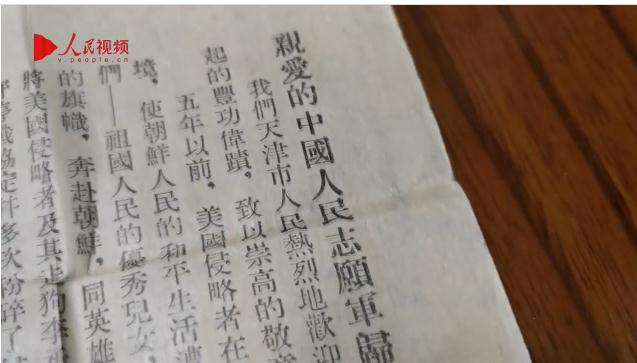 人民视频
v.people.cn
親愛的中國人民志願軍歸
我們天津市人民熱烈地歡迎
起的豐功偉蹟，致以崇高的敬意
五年以前，美國侵略者在
境，使朝鮮人民的和平生活遭
們——祖國人民的優秀兒女，
的旗幟，奔赴朝鮮，同英雄
將美國侵略者及其走狗李
停戰協定許多次粉碎了